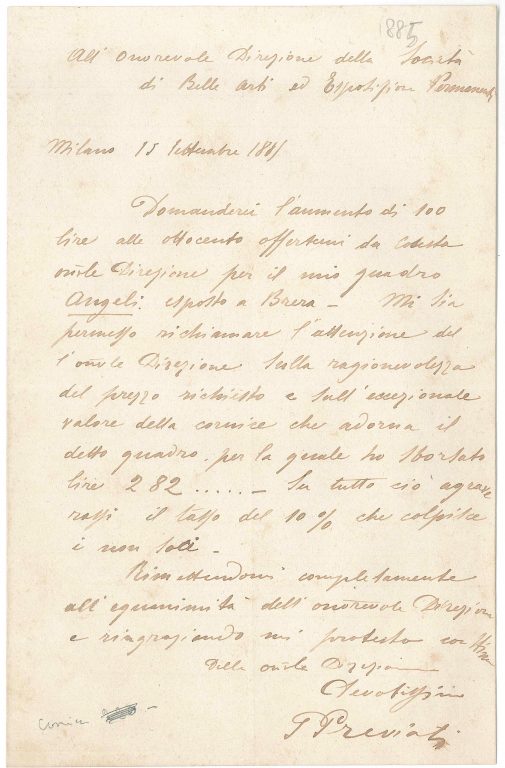 1885
All' onorevole Direzione della Società
di Belle Arti ed Esposizione Permanente
Milano 15 Settembre 1885
Domanderei l'aumento di 100
lire alle ottocento offertemi da codesta
onorle Direzione per il mio quadro
Angeli. esposto a Brera - Mi sia
permesso richiamare l'attenzione del
l'onorle Direzione sulla ragionevolezza
del prezzo richiesto e sull'eccezionale
valore della cornice che adorna il
detto quadro. per la quale ho sborsato
lire 282 ..... - Su tutto ciò agrave
rassi il tasso del 10% che colpisce
i non soci -
Rimettendomi completamente
all'equanimità dell'onorevole Direzione
e ringraziando mi protesto con stima
Della onorle Direzione
Devotissimo
G Previati
Cornice